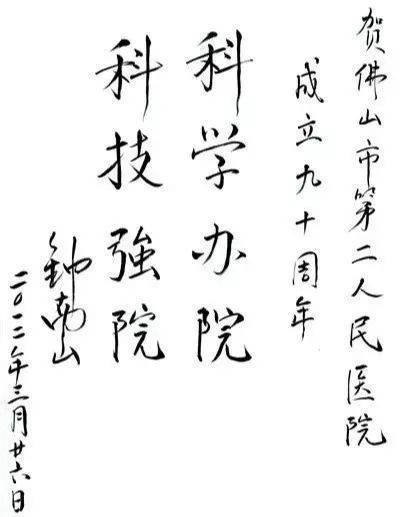 贺佛山市第二人民医院
成立九十周年
科学办院
科技強院
钟南山
二〇一二年三月廿六日